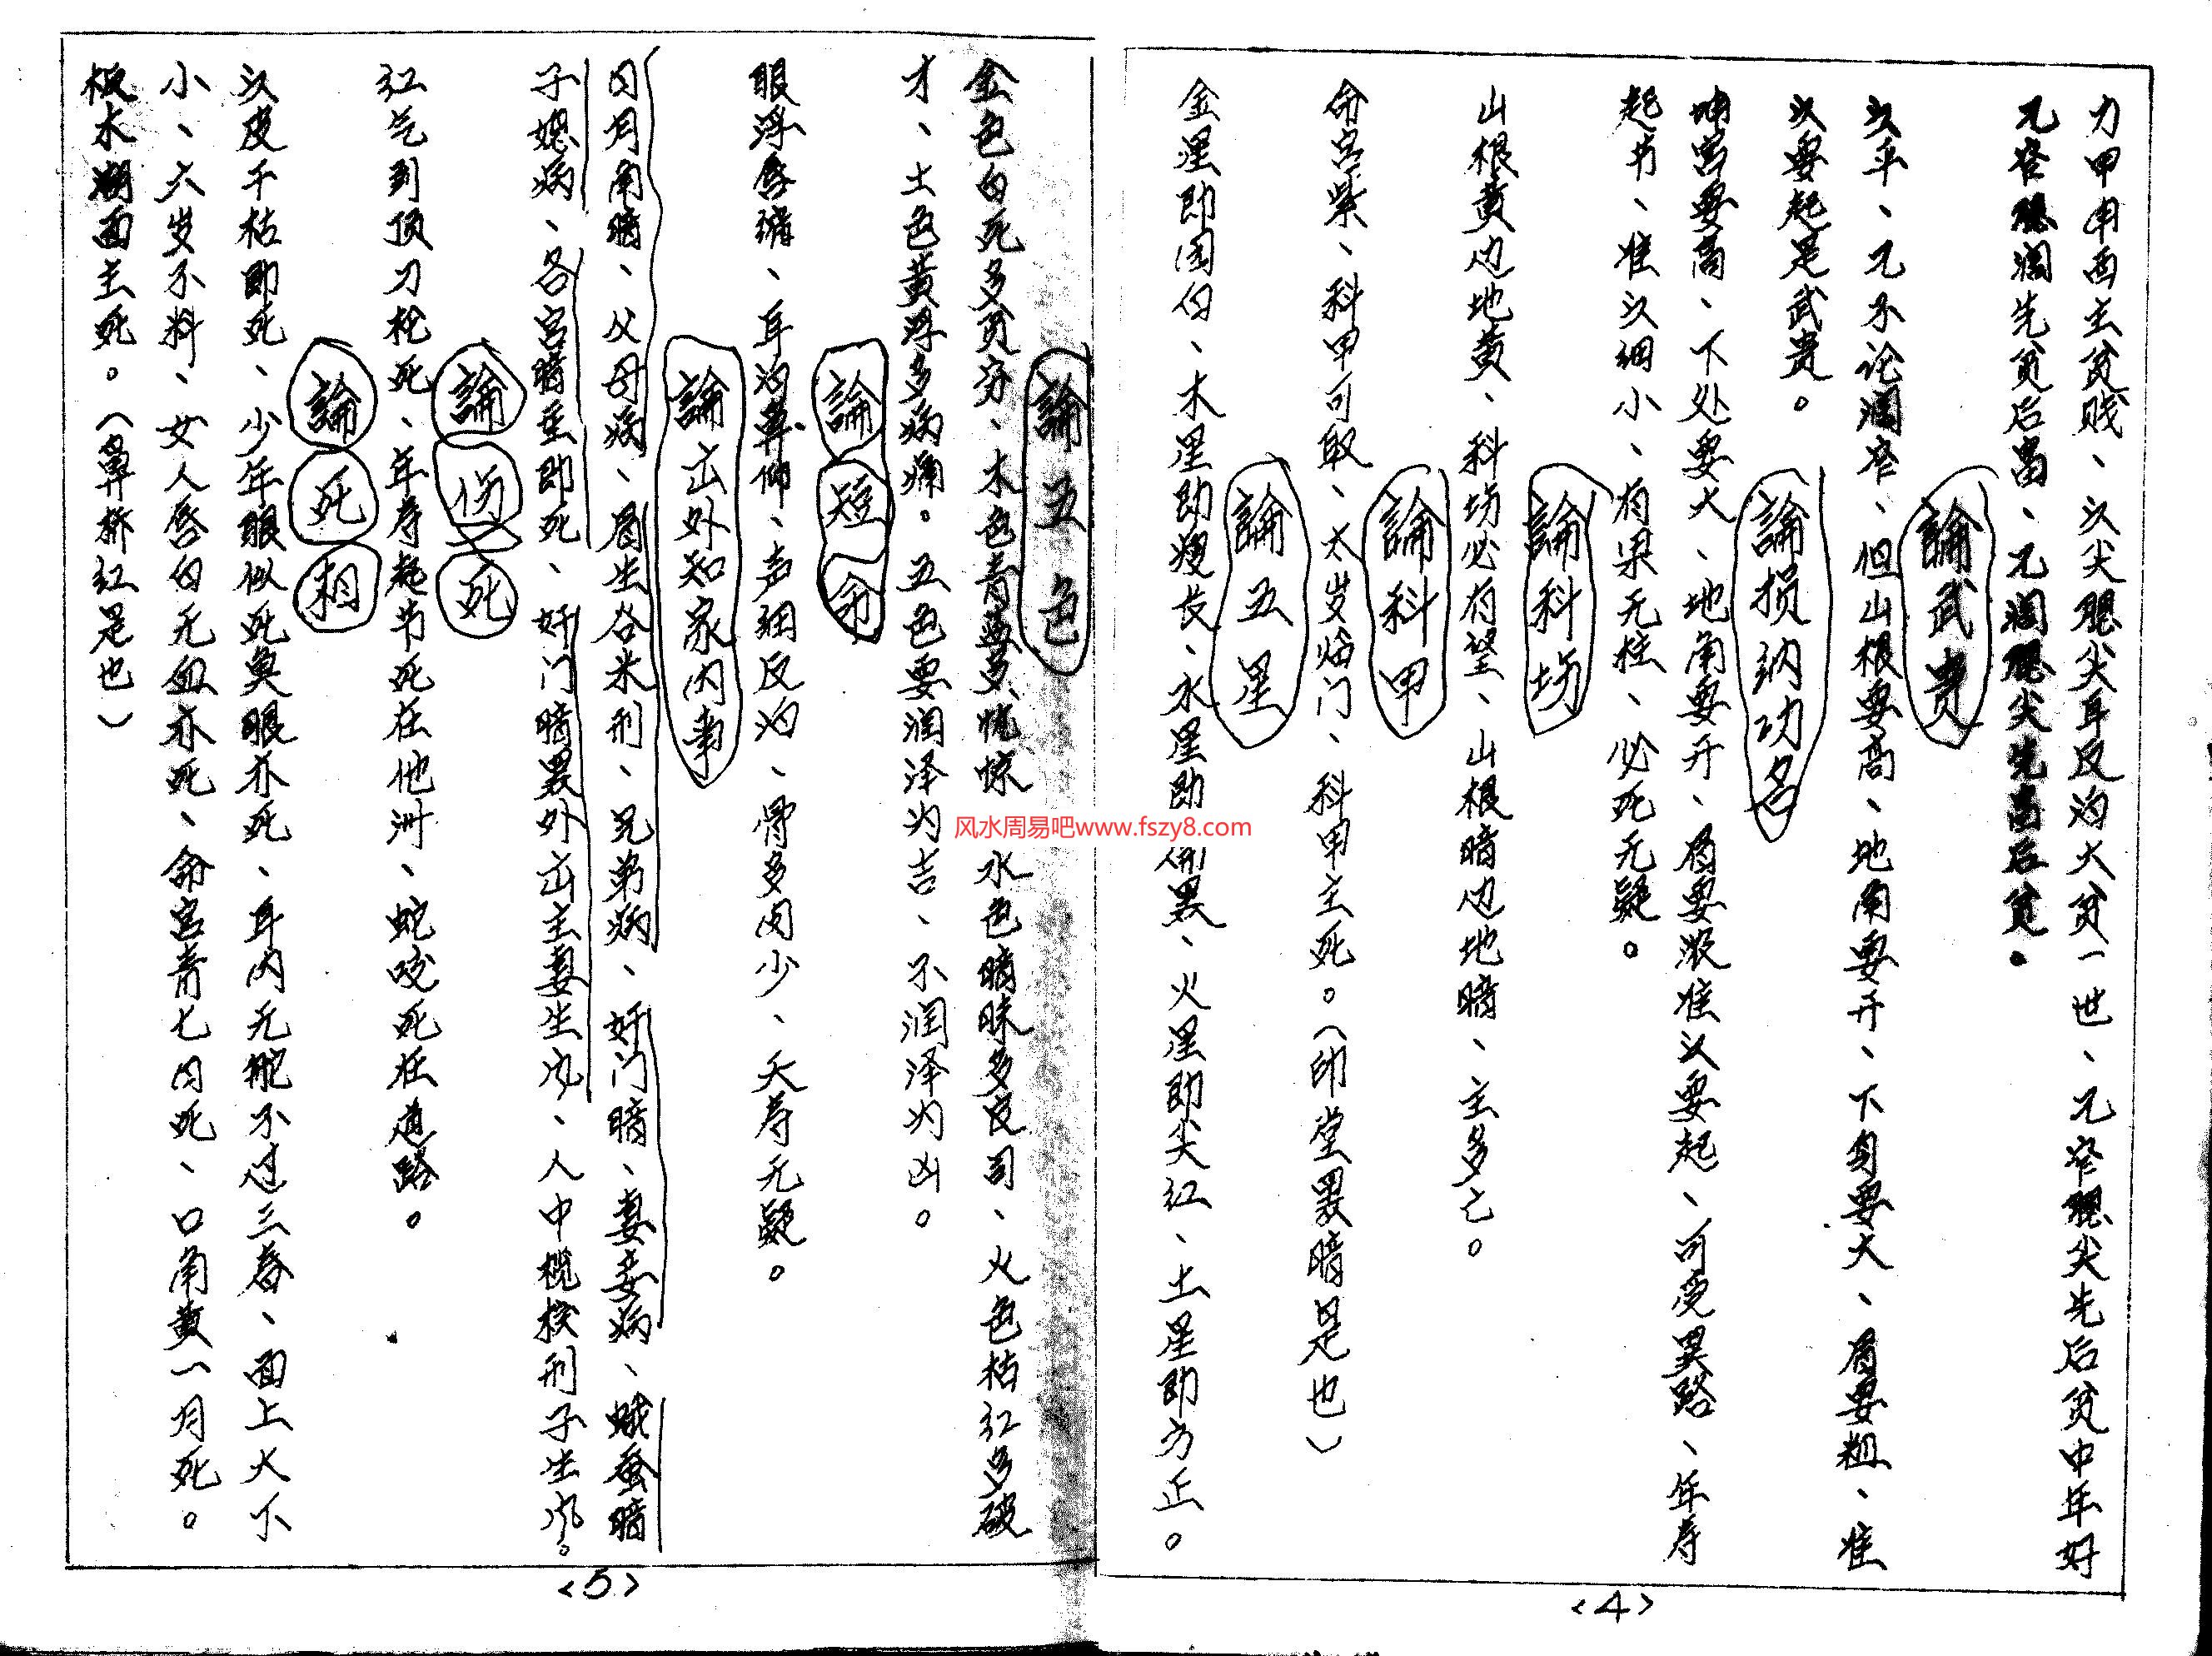 力甲由西主贫贱、头尖腿尖耳反为大贫一世、兄窄腿尖先后贫中年好
兄窄腿阔先贫后富、兄阔腿尖先富后贫。
論武贵
头平、兄不论阔窄、但山根要高、地角要开、下匀要大、眉要粗、准
头要起是武贵。
論损纳功名
坤宫要高、下处要大、地角要开、眉要浓准头要起、可受異路、年寿
起节、准头细小、有梁无柱、必死无疑。
論科场
山根黄边地黄、科场必有望、山根暗边地暗、主多亡。
論科甲
命宫紫、科甲可取、太岁临门、科甲主死。（印堂黑暗是也）
論五星
金星即园白、木星即瘦长、水星即黑、火星即尖红、土星即方正。
<4>
論五色
金色白死多贫穷、木色青忧惊 水色暗昧多官司、火色枯红多破
才、土色黄浮多病痛。五色要润泽为吉、不润泽为凶。
論短命
眼浮唇缩、耳为鼻仰、声细反为、骨多肉少、夭寿无疑。
論出外知家内事
日月角暗、父母病、眉生谷米刑、兄弟病、奸门暗、妻妾病、蛾蚕暗
子媳病、各宫暗重即死、奸门暗黑外出主妻生内、人中榄按刑子生内。
論伤死
红气到顶刀枪死、年寿起节死在他洲、蛇咬死在道路。
論死相
头皮干枯即死、少年眼似死鱼眼亦死、耳内无能不过三春、面上大下
小、六岁不料、女人唇白无血亦死、命宫青七日死、口角黄一月死。
板木湖面主死。（鼻桥红是也）
<5>
风水周易吧www.fszy8.com